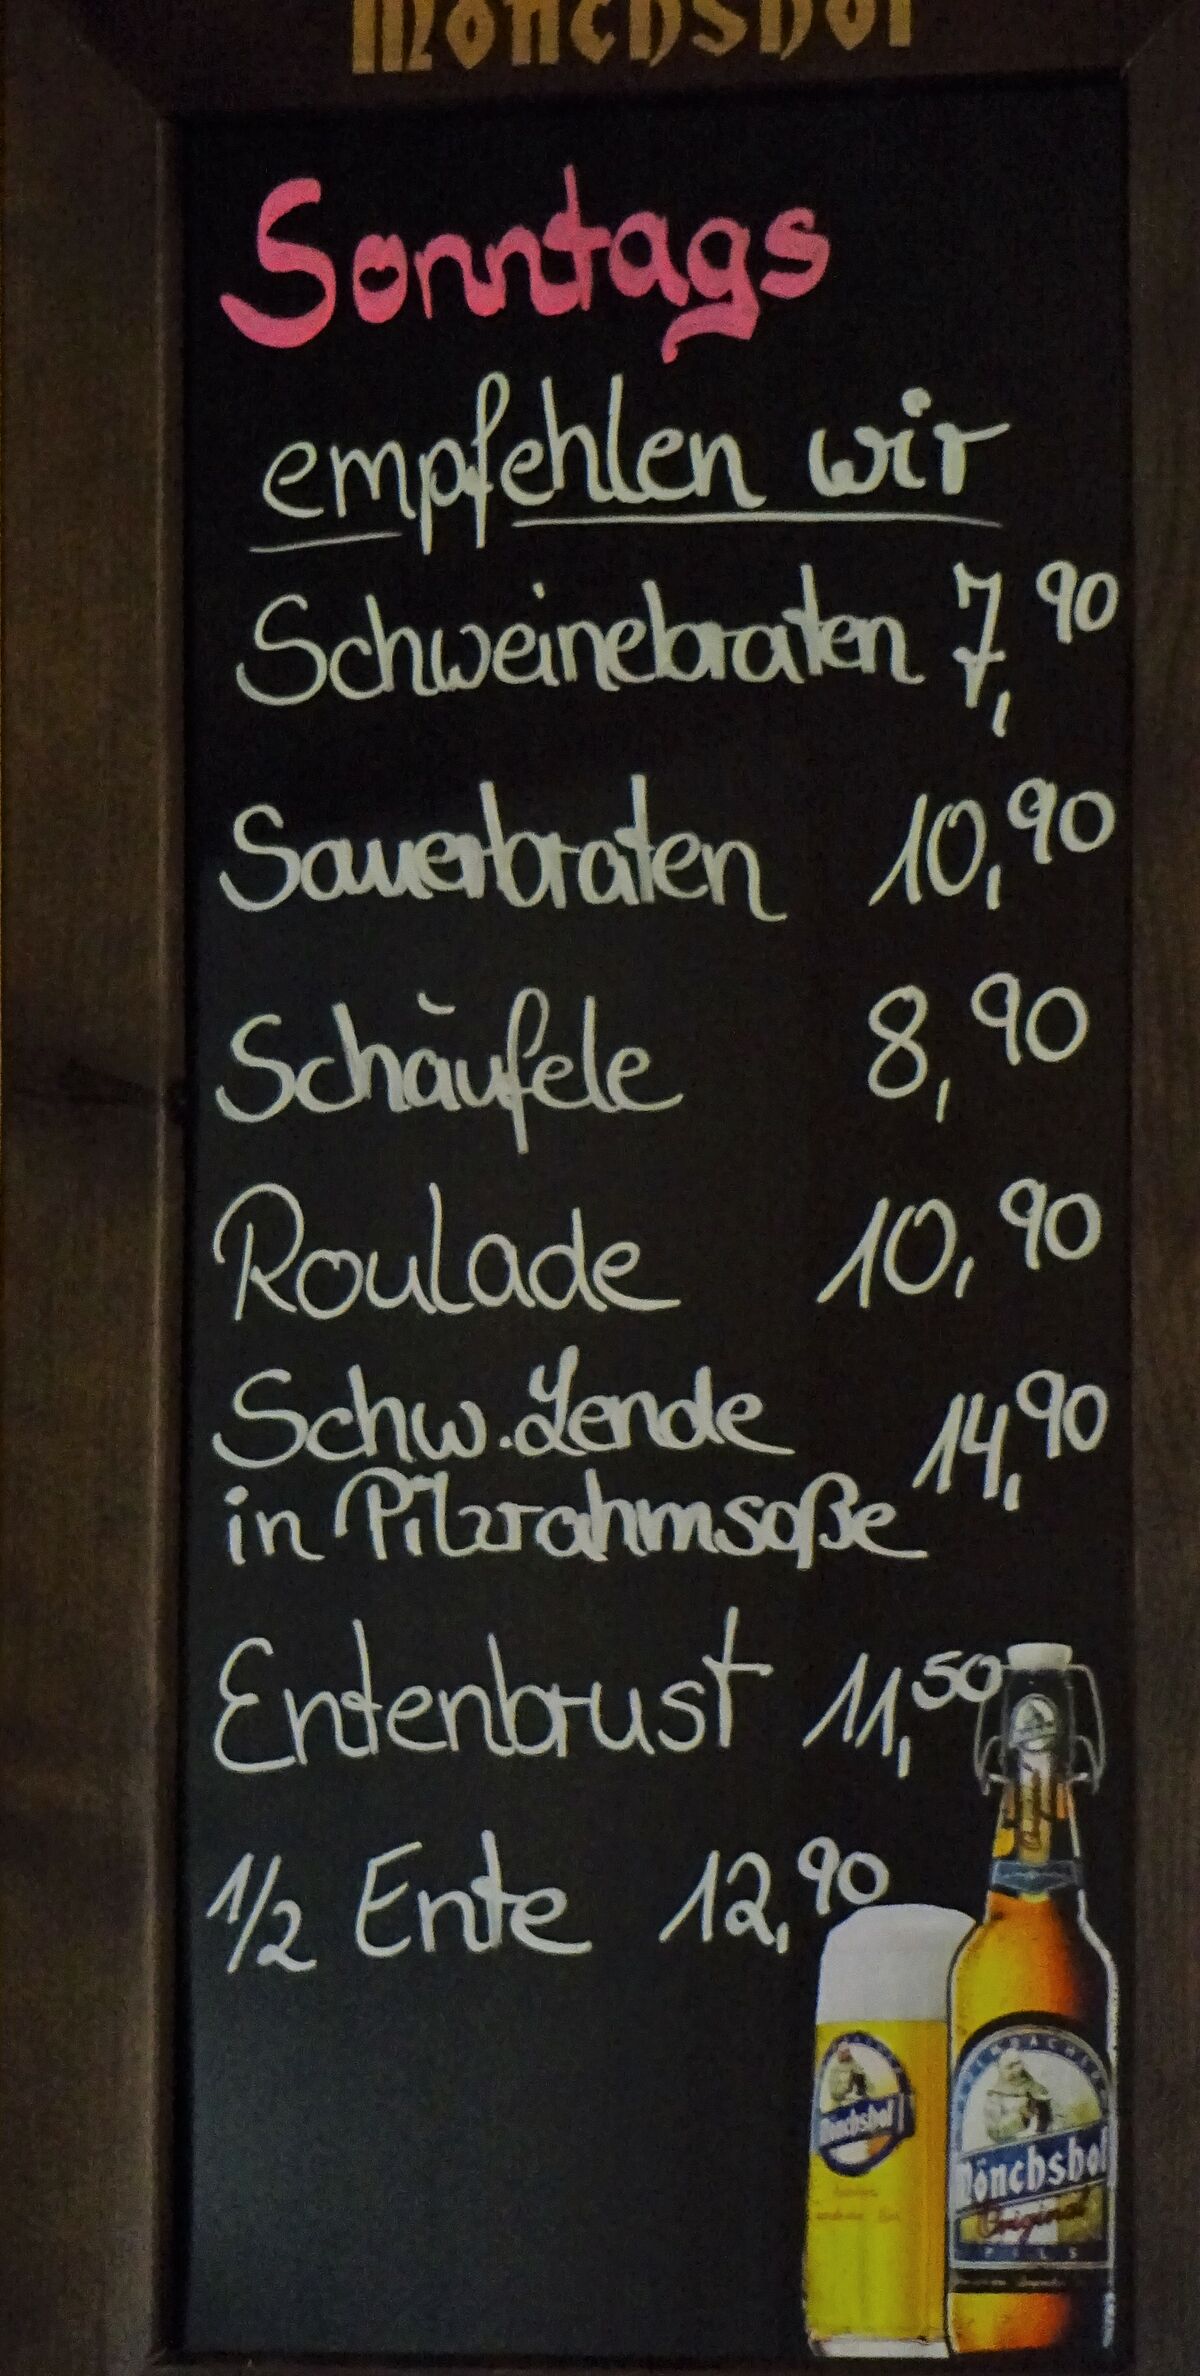 Mönchshof
Sonntags
empfehlen wir
Schweinebraten 7,90
Sauerbraten 10,90
Schäufele 8,90
Roulade 10,90
Schw. Lende 14,90
in Pilzrahmsoße
Entenbrust 11,50
1/2 Ente 12,90
Mönchshof
Mönchshof
Original
PILS